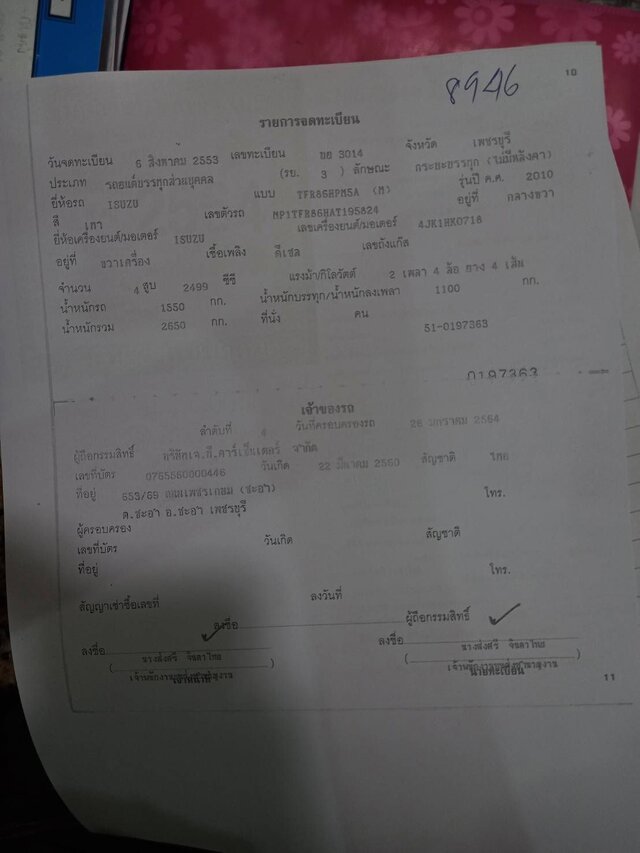 8946
10
รายการจดทะเบียน
วันจดทะเบียน 6 สิงหาคม 2553 เลขทะเบียน บย 3014 จังหวัด เพชรบุรี
ประเภท รถยนต์บรรทุกส่วนบุคคล (รย. 3 ) ลักษณะ กระบะบรรทุก (ไม่มีหลังคา)
ยี่ห้อรถ ISUZU แบบ TFR86HPM5A (M) รุ่นปี ค.ศ. 2010
สี เทา เลขตัวรถ MP1TFR86HAT195824 อยู่ที่ กลางขวา
ยี่ห้อเครื่องยนต์/มอเตอร์ ISUZU เลขเครื่องยนต์/มอเตอร์ 4JK1HK0718
อยู่ที่ ขวาเครื่อง เชื้อเพลิง ดีเซล เลขถังแก๊ส
จำนวน 4 สูบ 2499 ซีซี แรงม้า/กิโลวัตต์ 2 เพลา 4 ล้อ ยาง 4 เส้น
น้ำหนักรถ 1550 กก. น้ำหนักบรรทุก/น้ำหนักลงเพลา 1100 กก.
น้ำหนักรวม 2650 กก. ที่นั่ง คน
51-0197363
0197363
เจ้าของรถ
ลำดับที่ 4 วันที่ครอบครองรถ 26 มกราคม 2564
ผู้ถือกรรมสิทธิ์ บริษัทเจ.ที.คาร์เซ็นเตอร์ จำกัด
เลขที่บัตร 0765560000446 วันเกิด 22 มีนาคม 2560 สัญชาติ ไทย
ที่อยู่ 653/69 ถนนเพชรเกษม (ชะอำ) โทร.
ต.ชะอำ อ.ชะอำ เพชรบุรี
ผู้ครอบครอง
เลขที่บัตร วันเกิด สัญชาติ
ที่อยู่ โทร.
สัญญาเช่าซื้อเลขที่ ลงวันที่
ลงชื่อ ผู้ถือกรรมสิทธิ์
ลงชื่อ ลงชื่อ
( ) ( )
เจ้าหน้าที่ นายทะเบียน
11